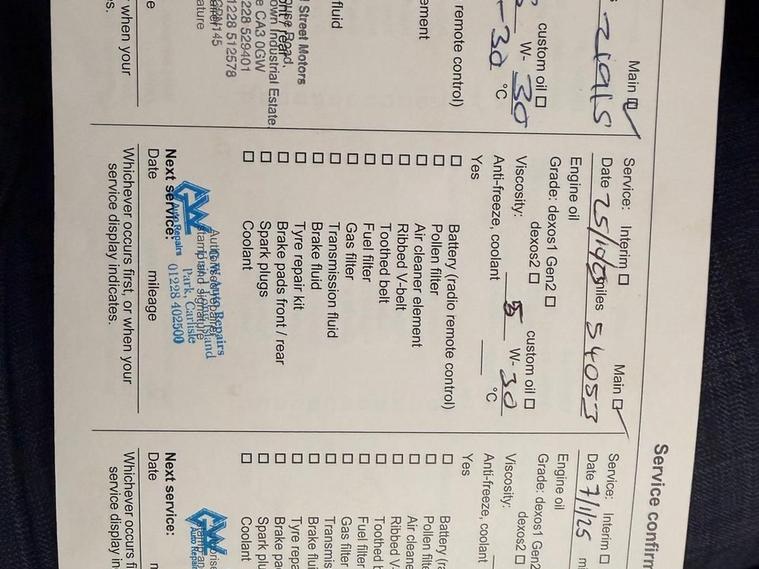 Service confirm
Main
2191S
custom oil
W- 30
-30 °C
remote control)
ement
fluid
Street Motors
Road,
own Industrial Estate
e CA3 0GW
228 529401
1228 512578
145
ature
e
when your
s.
Service: Interim Main
Date miles 54053
Engine oil
Grade: dexos1 Gen2 custom oil
dexos2
Viscosity: 5 W- 30
Anti-freeze, coolant °C
Yes
Battery (radio remote control)
Pollen filter
Air cleaner element
Ribbed V-belt
Toothed belt
Fuel filter
Gas filter
Transmission fluid
Brake fluid
Tyre repair kit
Brake pads front / rear
Spark plugs
Coolant
GW Auto Repairs
GW Auto Repairs
Island
Park, Carlisle
01228 402500
Next service:
Date mileage
Whichever occurs first, or when your
service display indicates.
Service: Interim
Date 7/1/25 mi
Engine oil
Grade: dexos1 Gen2
dexos2
Viscosity:
Anti-freeze, coolant
Yes
Battery (ra
Pollen filte
Air cleane
Ribbed V-
Toothed b
Fuel filter
Gas filter
Transmis
Brake flui
Tyre repa
Brake pa
Spark plu
Coolant
GW Auto Repair
Next service:
Date m
Whichever occurs fi
service display in